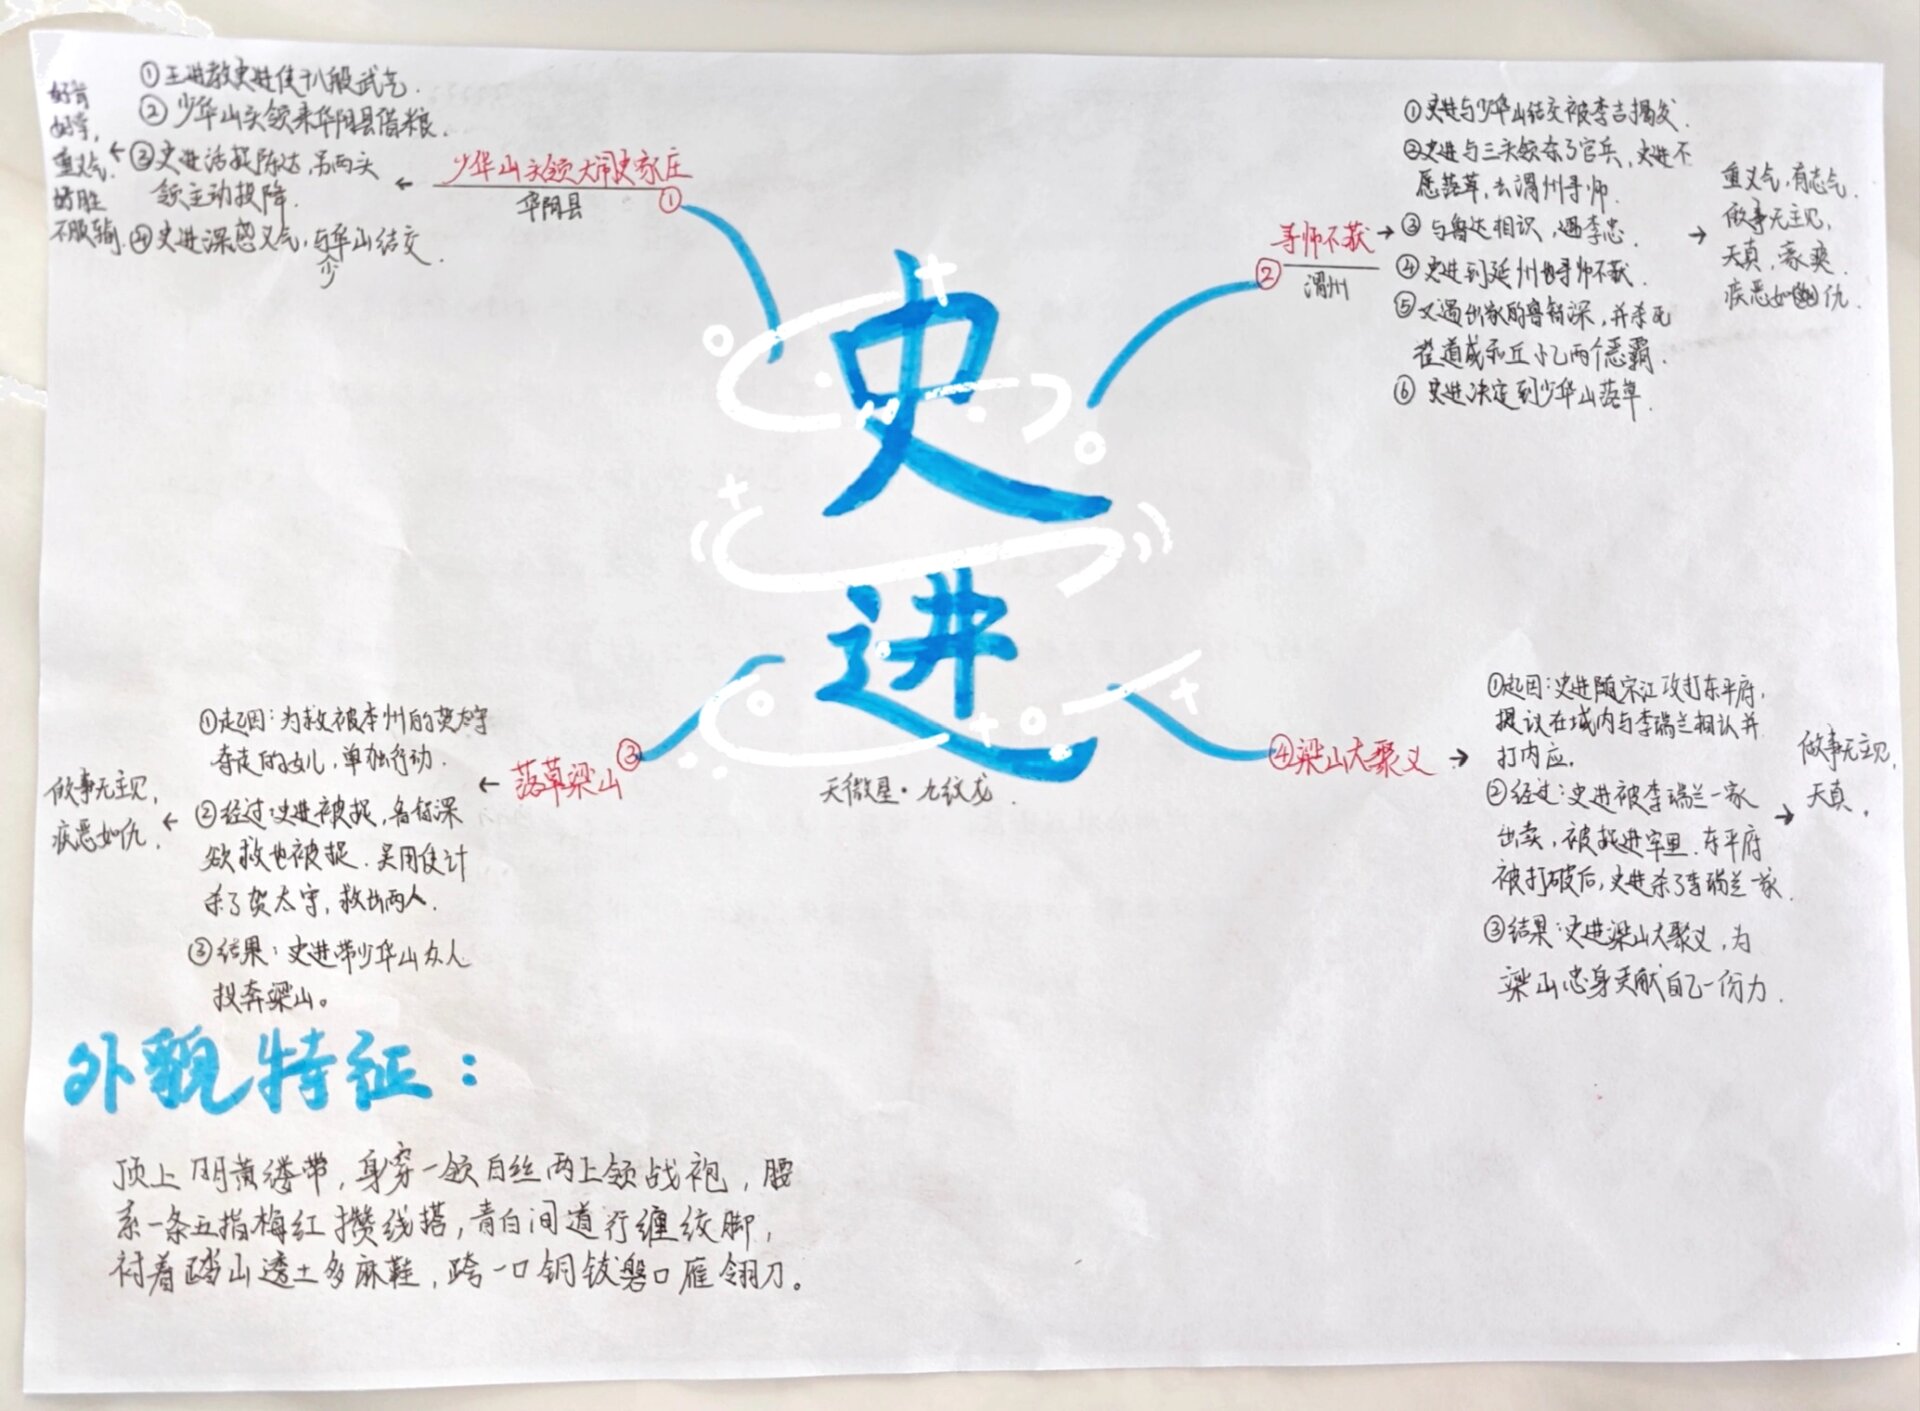 好言
好学,
重义气.
好胜
不服输.
①王进教史进使十八般武艺.
②少华山头领来华阴县借粮.
③史进活捉陈达,另两头
领主动投降.
④史进深感义气,与少华山结交.
少华山头领大闹史家庄
华阴县
①
史进
天微星·九纹龙.
②
寻师不获
渭州
①史进与少华山结交被李吉揭发.
②史进与三头领杀了官兵,史进不
愿落草,去渭州寻师.
③与鲁达相识,遇李忠.
④史进到延州也寻师不获.
⑤又遇出家的鲁智深,并杀死
崔道成和丘小乙两个恶霸.
⑥史进决定到少华山落草.
重义气,有志气.
做事无主见,
天真,豪爽.
疾恶如仇.
③
落草梁山
①起因:为救被本州的贺太守
夺走的女儿,单独行动.
②经过:史进被捉,鲁智深
欲救也被捉.吴用使计
杀了贺太守,救出两人.
③结果:史进带少华山众人
投奔梁山。
做事无主见,
疾恶如仇.
④梁山大聚义
①起因:史进随宋江攻打东平府,
提议在城内与李瑞兰相认并
打内应.
②经过:史进被李瑞兰一家
出卖,被抓进牢里.东平府
被打破后,史进杀了李瑞兰一家.
③结果:史进梁山大聚义,为
梁山忠身贡献自己一份力.
做事无主见,
天真.
外貌特征:
顶上明黄缕带,身穿一领白丝两上领战袍,腰
系一条五指梅红攒线搭,青白间道行缠绞脚,
衬着踏山透土多麻鞋,跨一口铜钹磐口雁翎刀。